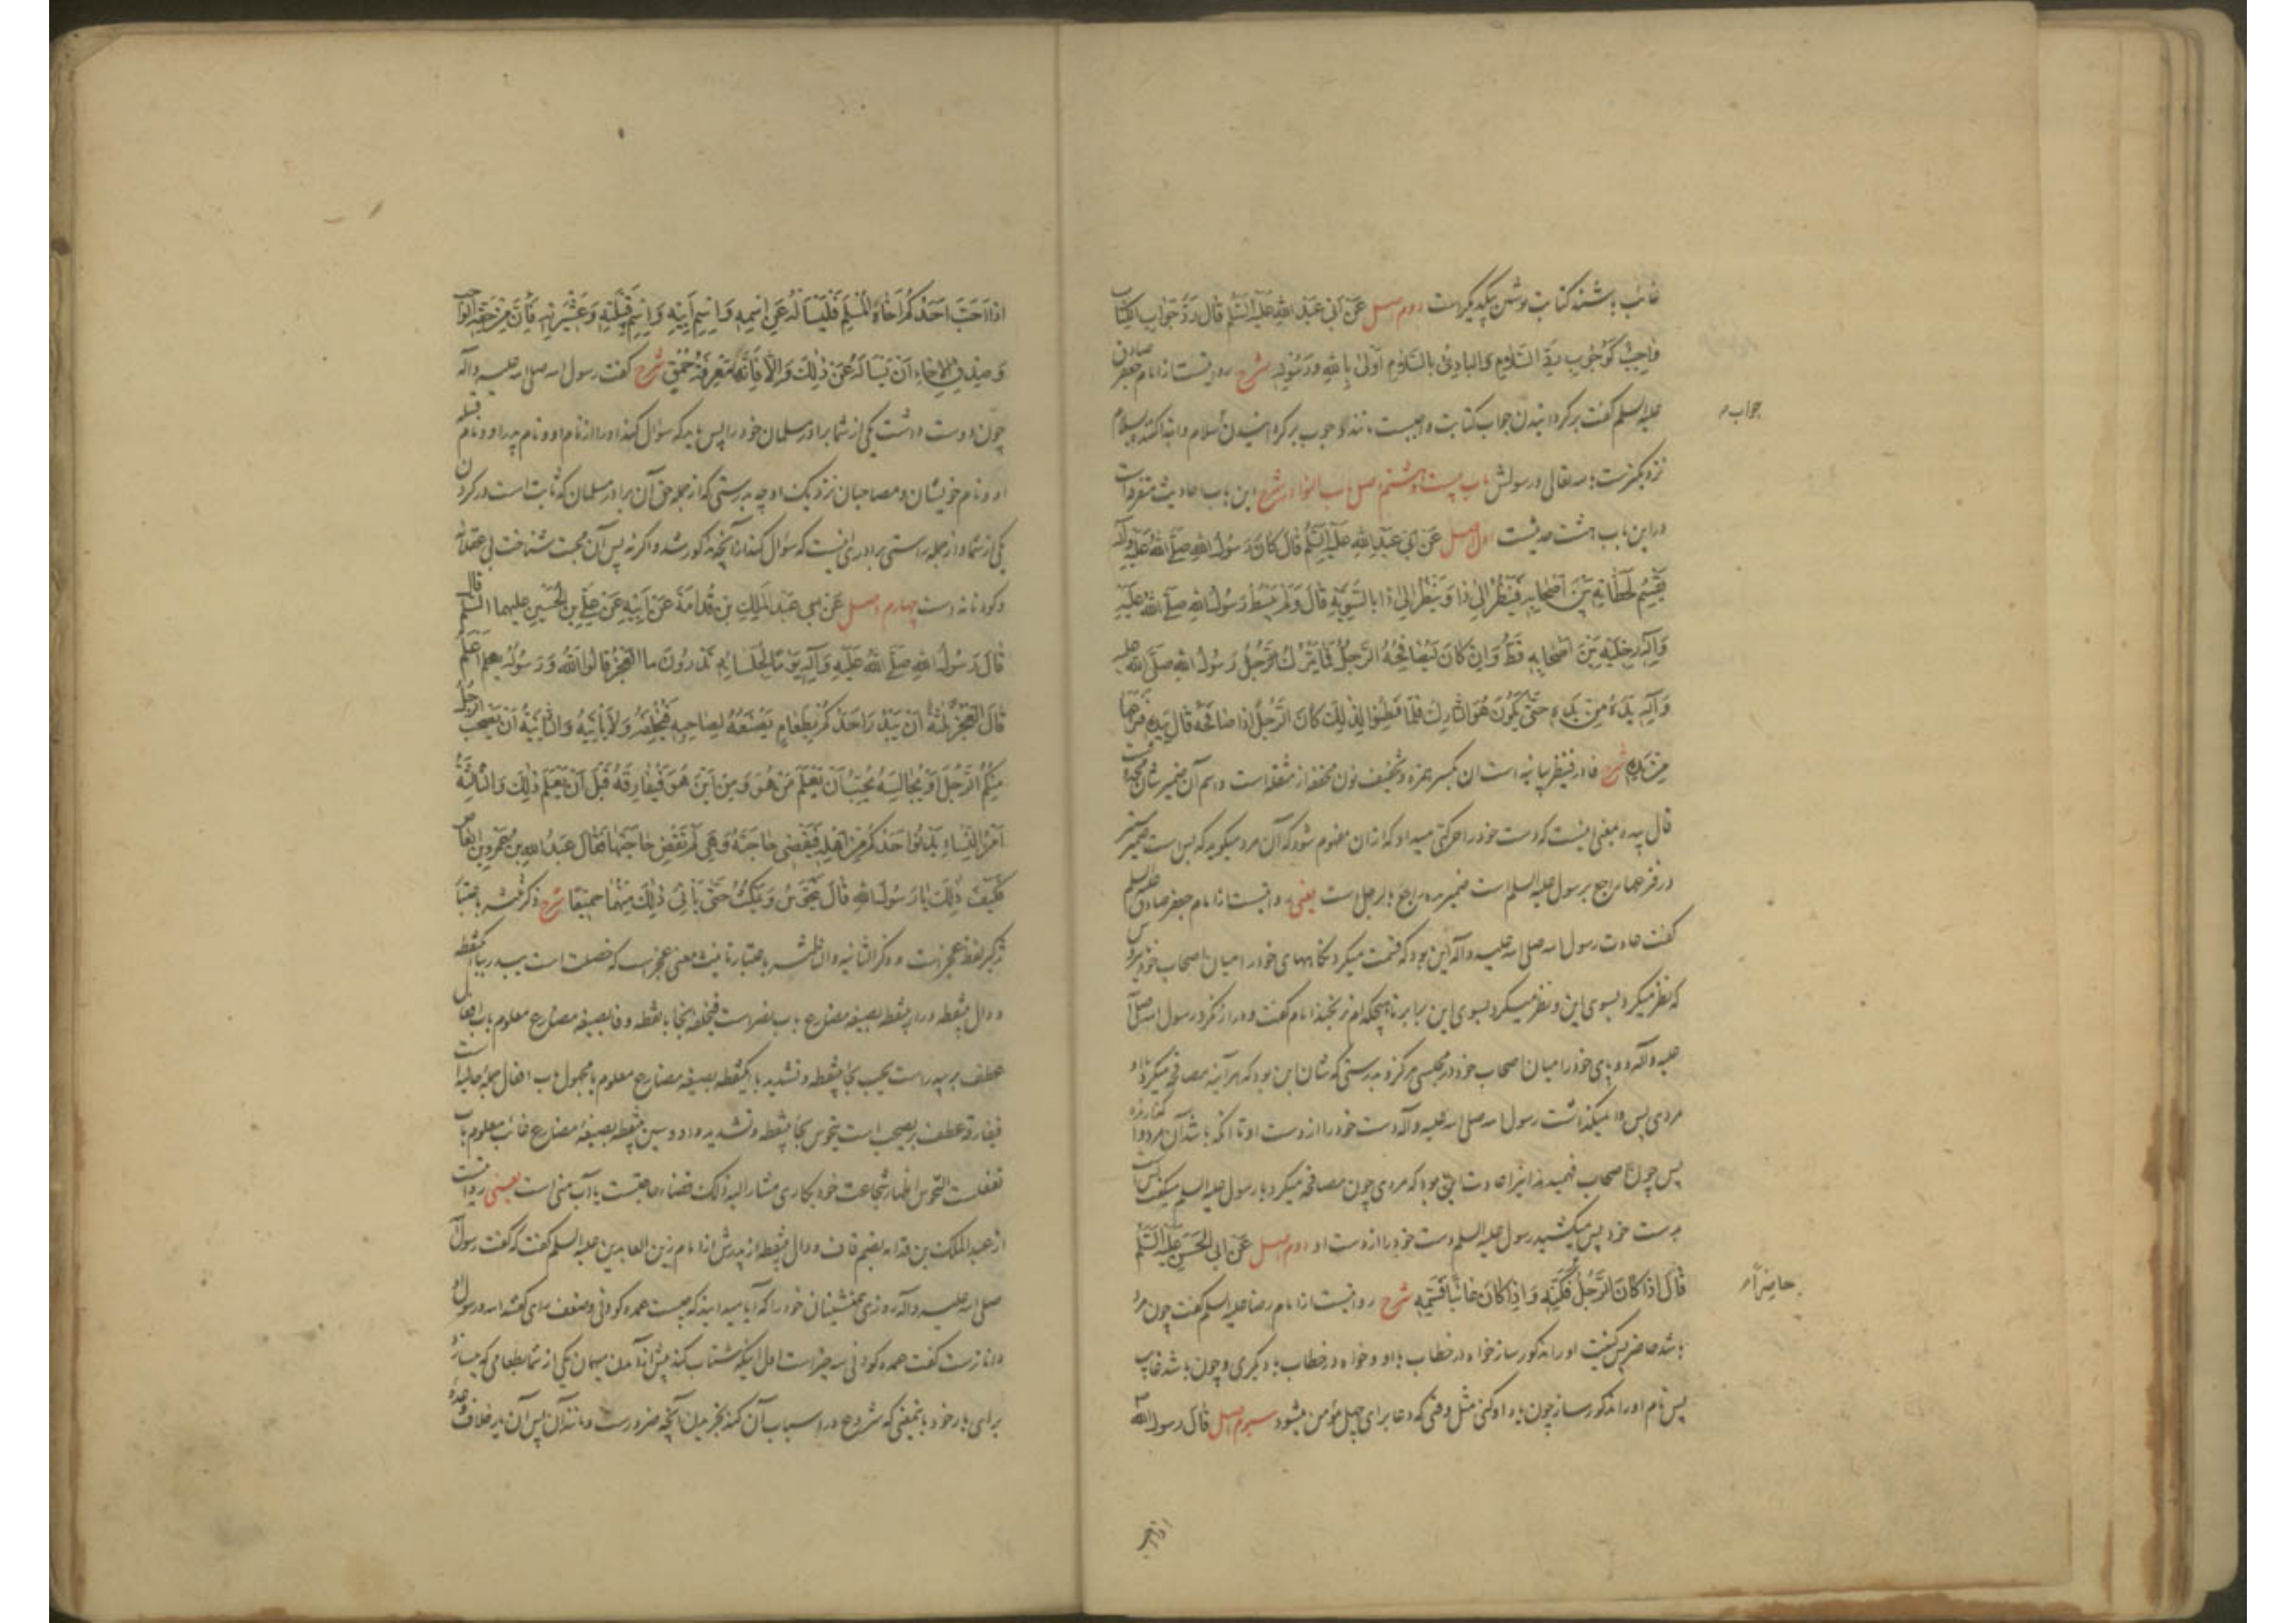 غائب باشند کتابت نوشتن بیکدیگرست دوم اصل عَنْ اَبی عَبْدِ اللهِ عَلَیْهِ السَّلَمُ قَالَ رَدُّ جَوَابِ الْکِتَابِ
وَاجِبٌ کَوُجُوبِ رَدِّ السَّلَامِ وَالْبَادِئُ بِالسَّلَامِ اَوْلیٰ بِاللهِ وَرَسُولِهِ شرح روایتست از امام جعفر صادق
علیه السلم گفت برگردانیدن جواب کتابت واجبست مانند وجوب برگردانیدن سلام وابتدا کننده بسلام
جواب
نزدیکترست بالله تعالی ورسولش باب بیست وهشتم اصل باب النوادر شرح این باب احادیث متفرقات
دراین باب هشت حدیثست اول اصل عَنْ اَبی عَبْدِ اللهِ عَلَیْهِ السَّلَمُ قَالَ کَانَ رَسُولُ اللهِ صَلَّی اللهُ عَلَیْهِ وَآلِه
یَقْسِمُ لَحَظَاتِهِ بَیْنَ اَصْحَابِهِ فَیَنْظُرُ اِلیٰ ذَا وَیَنْظُرُ اِلیٰ ذَا بِالسَّوِیَّةِ قَالَ وَلَمْ یَبْسُطْ رَسُولُ اللهِ صَلَّی اللهُ عَلَیْهِ
وَآلِهِ رِجْلَیْهِ بَیْنَ اَصْحَابِهِ قَطُّ وَاِنْ کَانَ لَیُصَافِحُهُ الرَّجُلُ فَمَا یَتْرُكُ رَسُولُ اللهِ صَلَّی اللهُ عَلَیْهِ
وَآلِهِ یَدَهُ مِنْ یَدِهِ حَتّیٰ یَکُونَ هُوَ التَّارِكَ فَلَمَّا فَطِنُوا لِذٰلِكَ کَانَ الرَّجُلُ اِذَا صَافَحَهُ قَالَ بِیَدِهِ فَنَزَعَهَا
مِنْ یَدِهِ شرح فاء در فینظر بیانیه است ان بکسر همزه وتخفیف نون مخففه از مثقله است واسم آن ضمیر شان محذوفست
قال بیده بمعنی اینست که دست خود را حرکتی میداد که ازان مفهوم شود که آن مرد میگوید که بس است ضمیر مستتر
در فنزعها راجع برسول علیه السلم است ضمیر یده راجع بالرجل است یعنی روایتست از امام جعفر صادق علیه السلم
گفت عادت رسول الله صلی الله علیه وآله این بود که قسمت میکرد نگاههای خود را میان اصحاب خود
که نظر میکرد بسوی این ونظر میکرد بسوی این برابر تا هیچکدام نرنجند امام گفت ودراز نکرد رسول الله صلی الله
علیه وآله دو پای خود را میان اصحاب خود در مجلسی هرگز وبدرستی که شان این بود که هر آینه مصافحه میکرد با او
مردی پس وا نمیگذاشت رسول الله صلی الله علیه وآله دست خود را از دست او تا آنکه باشد آن مرد واگذارنده
پس چون اصحاب فهمیدند اینرا عادت این بود که مردی چون مصافحه میکرد با رسول علیه السلم میگفت
بدست خود پس میکشید رسول علیه السلم دست خود را از دست او دوم اصل عَنْ اَبی الْحَسَنِ عَلَیْهِ السَّلَمُ
قَالَ اِذَا کَانَ الرَّجُلُ فَکَنِّهِ وَاِذَا کَانَ غَائِبًا فَسَمِّهِ شرح روایتست از امام رضا علیه السلم گفت چون مرد
حاضراً
باشد حاضر پس بکنیت او را مذکور ساز خواه در خطاب با او وخواه در خطاب با دیگری وچون باشد غائب
پس نام او را مذکور ساز چون یاد او کنی مثل وقتی که دعا برای چهل مؤمن میشود سیوم اصل قال رسول الله
اذا احب
اِذَا اَحَبَّ اَحَدُکُمْ اَخَاهُ الْمُسْلِمَ فَلْیَسْأَلْهُ عَنِ اسْمِهِ وَاسْمِ اَبِیهِ وَاسْمِ قَبِیلَتِهِ وَعَشِیرَتِهِ فَاِنَّ مِنْ حَقِّهِ الْوَاجِبِ
وَصِدْقِ الْاِخَاءِ اَنْ یَسْأَلَهُ عَنْ ذٰلِكَ وَاِلَّا فَاِنَّهَا مَعْرِفَةُ حُمْقٍ شرح گفت رسول الله صلی الله علیه وآله
چون دوست داشت یکی از شما برادر مسلمان خود را پس باید که سؤال کند او را از نام او ونام پدر او ونام قبیله
او ونام خویشان ومصاحبان نزدیک او چه بدرستی که از جمله حق آن برادر مسلمان که ثابت است در گردن
یکی از شما واز جمله راستی برادری اینست که سؤال کند از آنچه مذکور شد واگرنه پس آن محبت شناخت بی عقلانه
وکودنانه است چهارم اصل عَنْ عَبْدِ الْمَلِكِ بْنِ قُدَامَةَ عَنْ اَبِیهِ عَنْ عَلِیِّ بْنِ الْحُسَیْنِ علیهما السَّلَمُ قال
قَالَ رَسُولُ اللهِ صَلَّی اللهُ عَلَیْهِ وَآلِهِ یَوْمًا لِجُلَسَائِهِ تَدْرُونَ مَا الْعَجْزُ قَالُوا اللهُ وَرَسُولُهُ اَعْلَمُ
قَالَ الْعَجْزُ ثَلٰثَةٌ اَنْ یَبْدُرَ اَحَدُکُمْ بِطَعَامٍ یَصْنَعُهُ لِصَاحِبِهِ فَیُخْلِفُهُ وَلَا یَأْتِیهِ وَالثَّانِیَةُ اَنْ یَصْحَبَ الرجل
مِنْکُمُ الرَّجُلَ اَوْ یُجَالِسَهُ یُحِبُّ اَنْ یَعْلَمَ مَنْ هُوَ وَمِنْ اَیْنَ هُوَ فَیُفَارِقُهُ قَبْلَ اَنْ یَعْلَمَ ذٰلِكَ وَالثَّالِثَةُ
اَمْرُ النِّسَاءِ یَدْنُو اَحَدُکُمْ مِنْ اَهْلِهِ فَیَقْضِی حَاجَتَهُ وَهِیَ لَمْ تَقْضِ حَاجَتَهَا فَقَالَ عَبْدُ اللهِ بْنُ عَمْرِو بْنِ العاص
فَکَیْفَ ذٰلِكَ یَا رَسُولَ اللهِ قَالَ یَتَحَوَّسُ وَیَمْکُثُ حَتّیٰ یَأْتِیَ ذٰلِكَ مِنْهُمَا جَمِیعًا شرح ذکر ثلثه باعتبار
تذکیر لفظ عجزست وذکر الثانیه والثالثه باعتبار تانیث معنی عجزست که خصلت است یبدر بیا یکنقطه
ودال بینقطه وراء بینقطه بصیغه مضارع باب نصرست فیخلفه بخا با نقطه وفا بصیغه مضارع معلوم باب افعال
عطف بر یبدرست یحب بحا بینقطه وتشدید با یکنقطه بصیغه مضارع معلوم یا مجهول باب افعال جمله حالیه است
فیفارقه عطف بر یصحب است یتحوس بحا بینقطه وتشدید واو وسین بینقطه بصیغه مضارع غائب معلوم باب
تفعلست التحوس اظهار شجاعت خود بکاری مشار الیه ذلک قضاء حاجتست یا آب منی است یعنی روایتست
از عبد الملک بن قدامه بضم قاف ودال بینقطه از پدرش از امام زین العابدین علیه السلم گفت که گفت رسول الله
صلی الله علیه وآله روزی همنشینان خود را که آیا میدانید که چیست عمده کودنی وضعف رای گفتند الله ورسول او
داناترست گفت عمده کودنی سه چیزست اول اینکه شتاب کند پیش از آمدن میهمان یکی از شما بطعامی که میسازد
برای یار خود باینمعنی که شروع در اسباب آن کند بخریدن آنچه ضرورست ومانند آن پس آن یار خلاف وعده